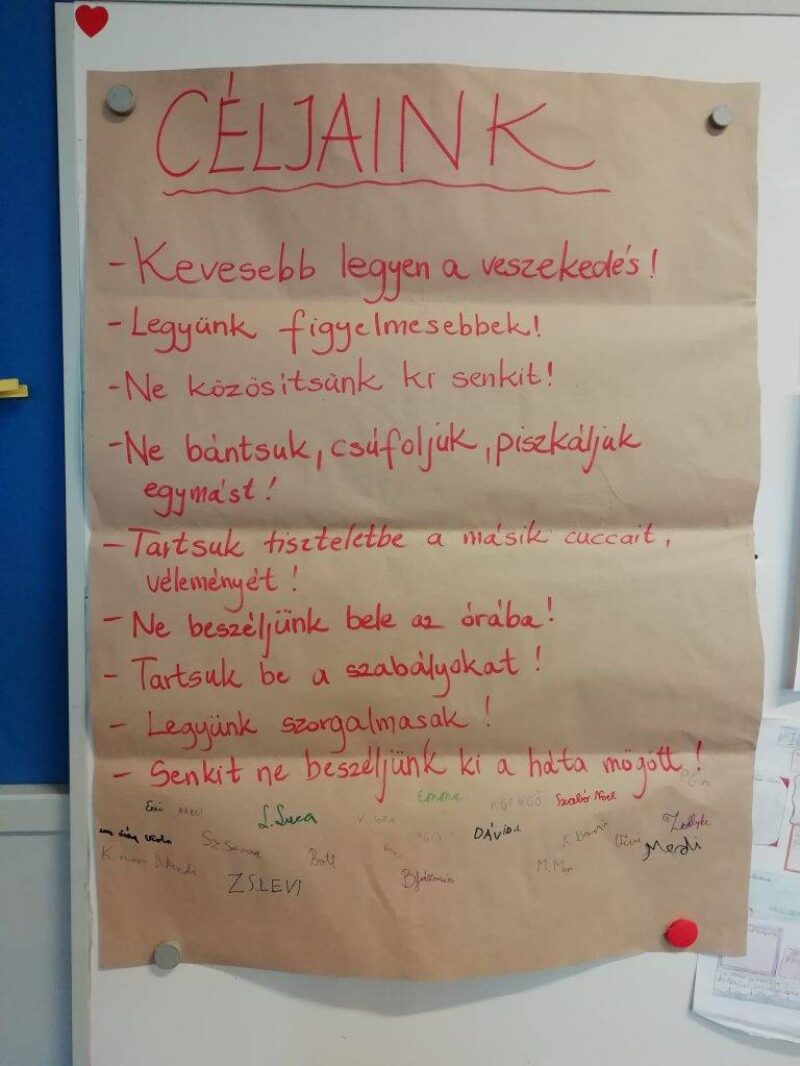 CÉLJAINK
- Kevesebb legyen a veszekedés!
- Legyünk figyelmesebbek!
- Ne közösítsünk ki senkit!
- Ne bántsuk, csúfoljuk, piszkáljuk
egymást!
- Tartsuk tiszteletbe a másik cuccait,
véleményét!
- Ne beszéljünk bele az órába!
- Tartsuk be a szabályokat!
- Legyünk szorgalmasak!
- Senkit ne beszéljünk ki a háta mögött!
Emi L. Luca Emma Szabó Noel
DÁVID Vivi Merdi
ZSLEVI